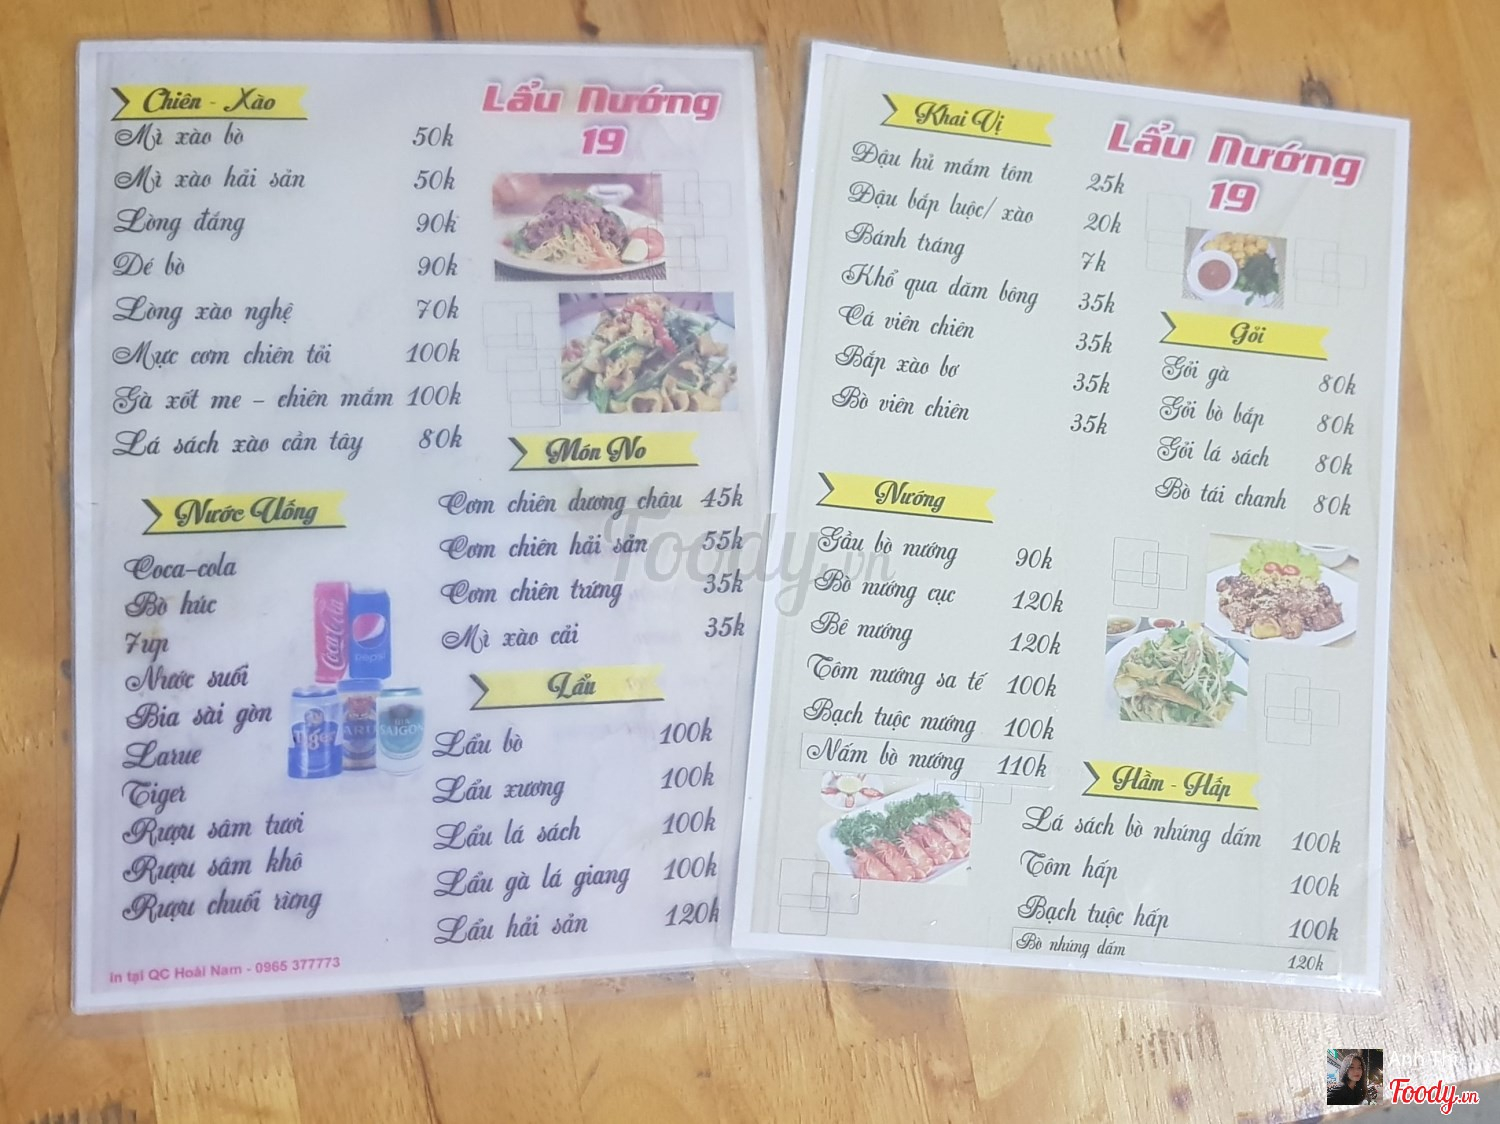 Chiên - Xào
Mì xào bò 50k
Mì xào hải sản 50k
Lòng đắng 90k
Dé bò 90k
Lòng xào nghệ 70k
Mực cơm chiên tỏi 100k
Gà xốt me - chiên mắm 100k
Lá sách xào cần tây 80k
Lẩu Nướng
19
Nước Uống
Coca-cola
Bò húc
7up
Nước suối
Bia sài gòn
Larue
Tiger
Rượu sâm tươi
Rượu sâm khô
Rượu chuối rừng
Coca-Cola
pepsi
Tiger
BIA
SAIGON
Món No
Cơm chiên dương châu 45k
Cơm chiên hải sản 55k
Cơm chiên trứng 35k
Mì xào cải 35k
Lẩu
Lẩu bò 100k
Lẩu xương 100k
Lẩu lá sách 100k
Lẩu gà lá giang 100k
Lẩu hải sản 120k
in tại QC Hoài Nam - 0965 377773
Khai Vị
Đậu hủ mắm tôm 25k
Đậu bắp luộc/ xào 20k
Bánh tráng 7k
Khổ qua dăm bông 35k
Cá viên chiên 35k
Bắp xào bơ 35k
Bò viên chiên 35k
Lẩu Nướng
19
Gỏi
Gỏi gà 80k
Gỏi bò bắp 80k
Gỏi lá sách 80k
Bò tái chanh 80k
Nướng
Gầu bò nướng 90k
Bò nướng cục 120k
Bê nướng 120k
Tôm nướng sa tế 100k
Bạch tuộc nướng 100k
Nấm bò nướng 110k
Hầm - Hấp
Lá sách bò nhúng dấm 100k
Tôm hấp 100k
Bạch tuộc hấp 100k
Bò nhúng dấm 120k
Foody.vn
Anh Thi
Foody.vn